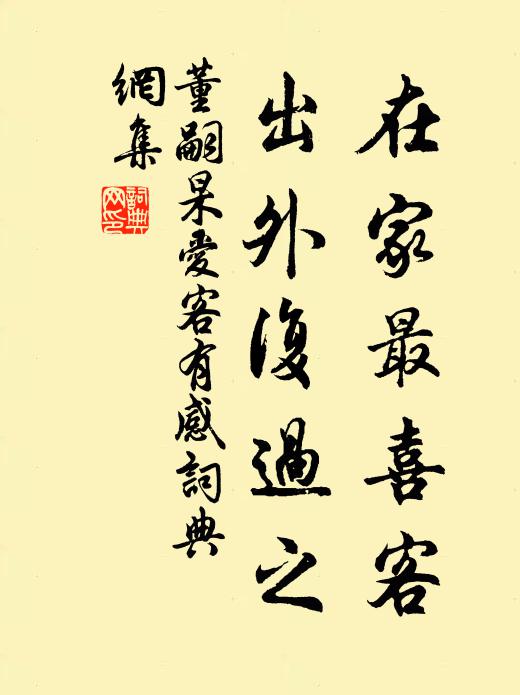 在家最喜客
出外復過之
董嗣杲愛客有感詞典
網集
詞典
网印